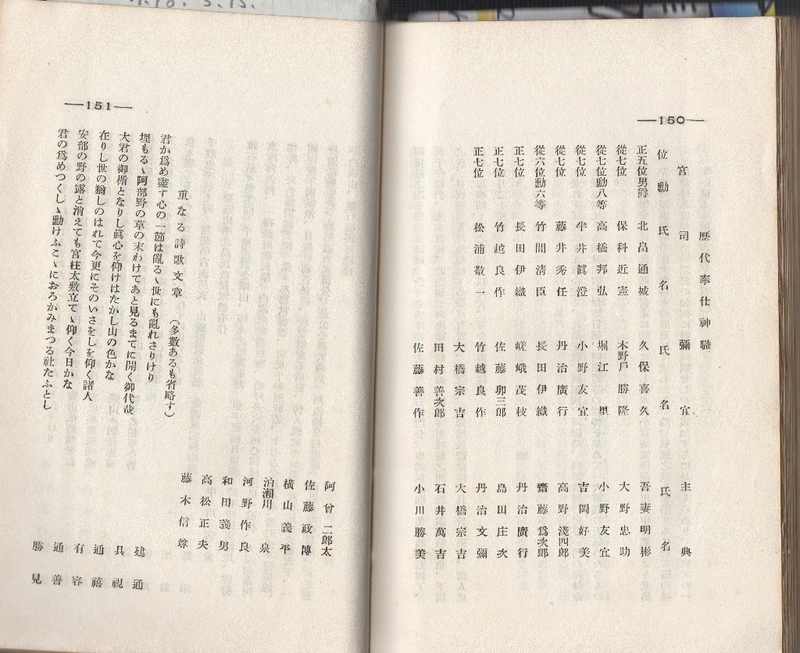 —150—
歷代奉仕神職
宮司 彌宜 主典
位勳 氏名 氏名 氏名
正五位男爵 北畠通城 久保喜久 吾妻明彬
從七位 保科近悳 木野戶勝隆 大野忠助
從七位勳八等 高橋邦弘 堀江里 小野友宜
從七位 牟井眞澄 小野友宜 吉岡好美
從七位 藤井秀任 丹治廣行 高野淺四郎
從六位勳六等 竹間清臣 長田伊織 齋藤爲次郎
正七位 長田伊織 嵯峨茂枝 丹治廣行
正七位 竹越良作 佐藤卯三郎 島田庄次
正七位 松浦敬一 竹越良作 丹治文彌
大橋宗吉 大橋宗吉
田村善次郎 石井萬吉
佐藤善作 小川勝美
—151—
阿曾二郎太
佐藤政博
橫山義平
泊瀨川泉
河野作良
和田義男
高松正夫
藤木信尊
重なる詩歌文章 (多數あるも省略す)
君か爲め盡す心の一筋は亂るゝ世にも亂れさりけり 建通
埋もるゝ阿部野の草の末わけてあと見るまてに開く御代哉 具視
大君の御楯となりし眞心を仰けはたかし山の色かな 通禧
在りし世の猶しのはれて今更にそのいさをしを仰く諸人 有容
安部の野の露と消えても宮柱太敷立てゝ仰く今日かな 通善
君の爲めつくしゝ勳けふこゝにおろかみまつる社たふとし 勝見